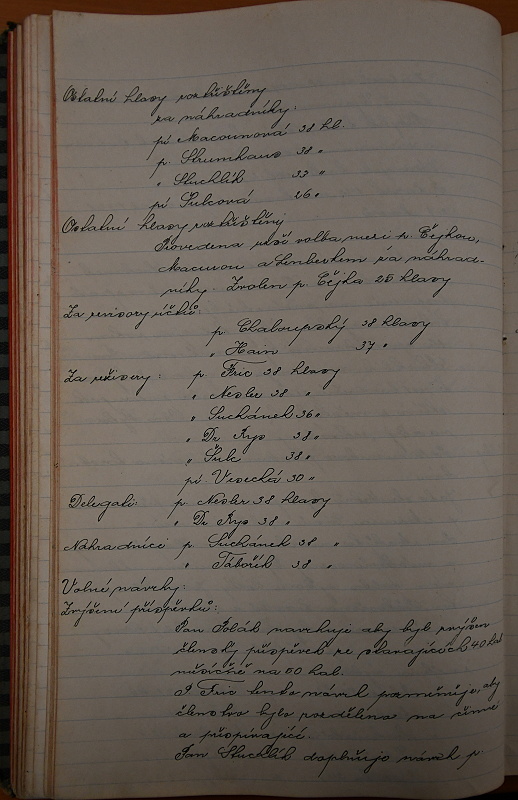 Ostatní hlasy roztříštěny
za náhradníky:
pí Macounová 38 hl.
p. Strumhaus 38 "
" Stuchlík 33 "
pí Šulcová 26 "
Ostatní hlasy roztříštěny
Provedena užší volba mezi p. Čejkou,
Macurou a Lenberkem za náhrad-
níky. Zvolen p. Čejka 25 hlasy
Za revisory účtů:
p. Chaloupský 38 hlasy
" Hain 37 "
Za režisery: p. Fric 38 hlasy
" Nesler 38 "
" Suchánek 36 "
" Dr Kys 38 "
" Šulc 38 "
pí. Vesecká 30 "
Delegáti: p. Nesler 38 hlasy
" Dr Kys 38 "
Náhradníci p. Suchánek 38 "
" Tábořík 38 "
Volné návrhy:
Zvýšení příspěvků:
Pan Polák navrhuje aby byl zvýšen
členský příspěvek ze stávajících 40 hal
měsíčně na 50 hal.
P. Fric tento návrh pozměňuje, aby
členstvo bylo rozděleno na činné
a přispívající.
Pan Stuchlík doplňuje návrh p.